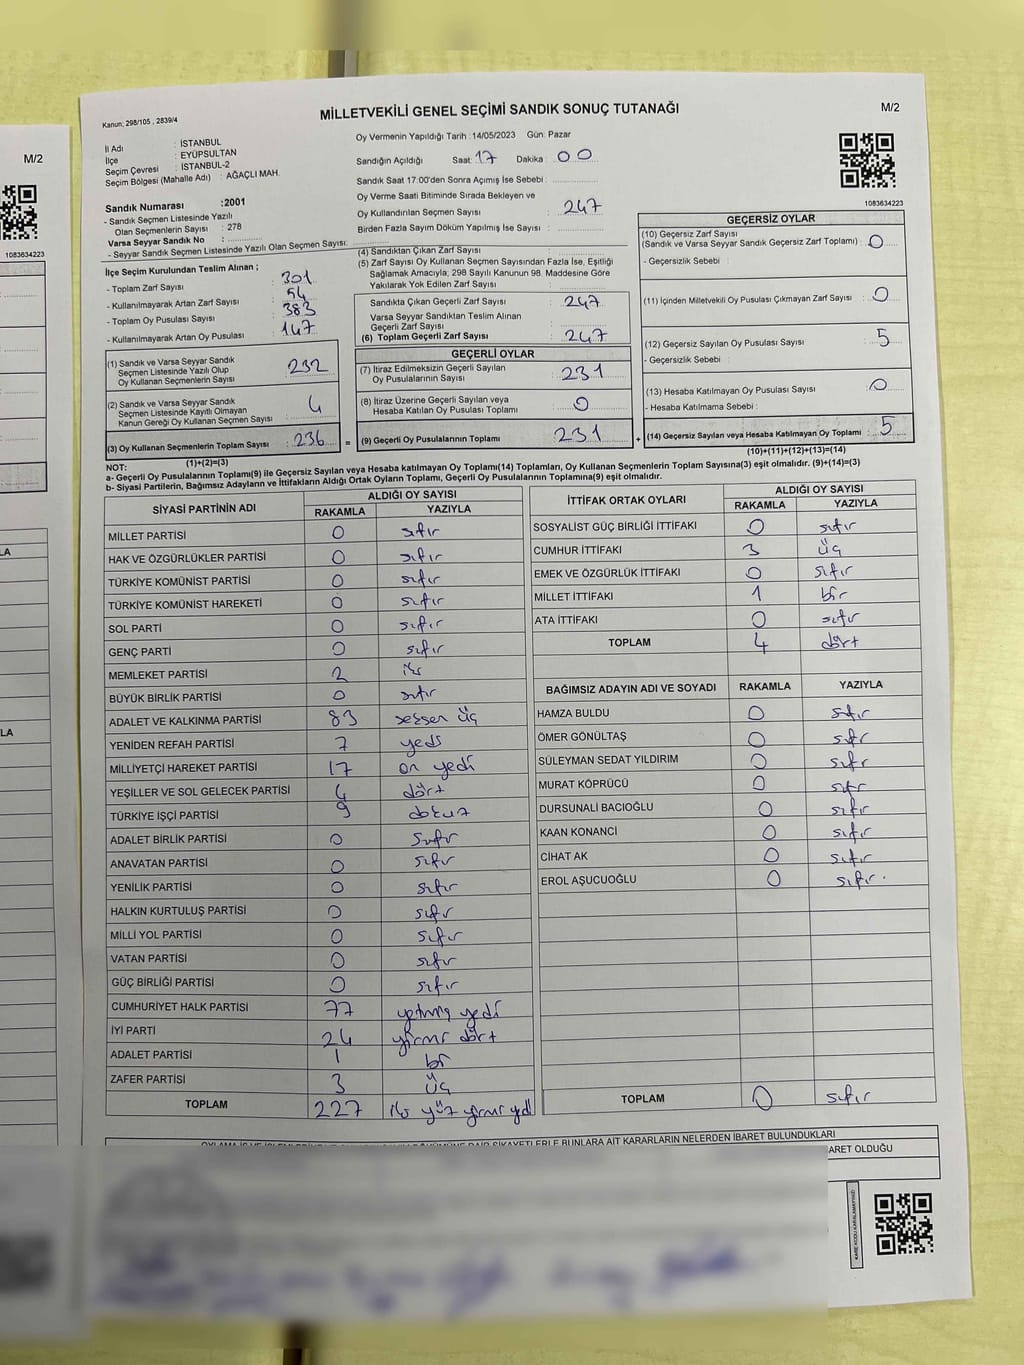 MİLLETVEKİLİ GENEL SEÇİMİ SANDIK SONUÇ TUTANAĞI
M/2
Kanun: 298/105 , 2839/4
İl Adı : İSTANBUL
İlçe : EYÜPSULTAN
Seçim Çevresi : İSTANBUL-2
Seçim Bölgesi (Mahalle Adı) : AĞAÇLI MAH.
Sandık Numarası :2001
- Sandık Seçmen Listesinde Yazılı
Olan Seçmenlerin Sayısı : 278
Varsa Seyyar Sandık No :
- Seyyar Sandık Seçmen Listesinde Yazılı Olan Seçmen Sayısı:
Oy Vermenin Yapıldığı Tarih :14/05/2023 Gün: Pazar
Sandığın Açıldığı Saat: 17 Dakika : 00
Sandık Saat 17:00'den Sonra Açımış İse Sebebi :
Oy Verme Saati Bitiminde Sırada Bekleyen ve
Oy Kullandırılan Seçmen Sayısı : 247
Birden Fazla Sayım Döküm Yapılmış İse Sayısı :
1083634223
İlçe Seçim Kurulundan Teslim Alınan ;
- Toplam Zarf Sayısı : 301
- Kullanılmayarak Artan Zarf Sayısı : 54
- Toplam Oy Pusulası Sayısı : 383
- Kullanılmayarak Artan Oy Pusulası : 147
(1) Sandık ve Varsa Seyyar Sandık
Seçmen Listesinde Yazılı Olup
Oy Kullanan Seçmenlerin Sayısı : 232
(2) Sandık ve Varsa Seyyar Sandık
Seçmen Listesinde Kayıtlı Olmayan
Kanun Gereği Oy Kullanan Seçmen Sayısı : 4
(3) Oy Kullanan Seçmenlerin Toplam Sayısı : 236
(1)+(2)=(3)
(4) Sandıktan Çıkan Zarf Sayısı :
(5) Zarf Sayısı Oy Kullanan Seçmen Sayısından Fazla İse, Eşitliği
Sağlamak Amacıyla; 298 Sayılı Kanunun 98. Maddesine Göre
Yakılarak Yok Edilen Zarf Sayısı :
Sandıkta Çıkan Geçerli Zarf Sayısı : 247
Varsa Seyyar Sandıktan Teslim Alınan
Geçerli Zarf Sayısı :
(6) Toplam Geçerli Zarf Sayısı : 247
GEÇERLİ OYLAR
(7) İtiraz Edilmeksizin Geçerli Sayılan
Oy Pusulalarının Sayısı : 231
(8) İtiraz Üzerine Geçerli Sayılan veya
Hesaba Katılan Oy Pusulası Toplamı : 0
= (9) Geçerli Oy Pusulalarının Toplamı : 231
GEÇERSİZ OYLAR
(10) Geçersiz Zarf Sayısı
(Sandık ve Varsa Seyyar Sandık Geçersiz Zarf Toplamı) : 0
- Geçersizlik Sebebi :
(11) İçinden Milletvekili Oy Pusulası Çıkmayan Zarf Sayısı : 0
(12) Geçersiz Sayılan Oy Pusulası Sayısı : 5
- Geçersizlik Sebebi :
(13) Hesaba Katılmayan Oy Pusulası Sayısı : 0
- Hesaba Katılmama Sebebi :
+ (14) Geçersiz Sayılan veya Hesaba Katılmayan Oy Toplamı : 5
(10)+(11)+(12)+(13)=(14)
NOT:
a- Geçerli Oy Pusulalarının Toplamı(9) ile Geçersiz Sayılan veya Hesaba katılmayan Oy Toplamı(14) Toplamları, Oy Kullanan Seçmenlerin Toplam Sayısına(3) eşit olmalıdır. (9)+(14)=(3)
b- Siyasi Partilerin, Bağımsız Adayların ve İttifakların Aldığı Ortak Oyların Toplamı, Geçerli Oy Pusulalarının Toplamına(9) eşit olmalıdır.
SİYASİ PARTİNİN ADI ALDIĞI OY SAYISI
RAKAMLA YAZIYLA
MİLLET PARTİSİ 0 sıfır
HAK VE ÖZGÜRLÜKLER PARTİSİ 0 sıfır
TÜRKİYE KOMÜNİST PARTİSİ 0 sıfır
TÜRKİYE KOMÜNİST HAREKETİ 0 sıfır
SOL PARTİ 0 sıfır
GENÇ PARTİ 0 sıfır
MEMLEKET PARTİSİ 2 iki
BÜYÜK BİRLİK PARTİSİ 0 sıfır
ADALET VE KALKINMA PARTİSİ 83 seksen üç
YENİDEN REFAH PARTİSİ 7 yedi
MİLLİYETÇİ HAREKET PARTİSİ 17 on yedi
YEŞİLLER VE SOL GELECEK PARTİSİ 4 dört
TÜRKİYE İŞÇİ PARTİSİ 9 dokuz
ADALET BİRLİK PARTİSİ 0 sıfır
ANAVATAN PARTİSİ 0 sıfır
YENİLİK PARTİSİ 0 sıfır
HALKIN KURTULUŞ PARTİSİ 0 sıfır
MİLLİ YOL PARTİSİ 0 sıfır
VATAN PARTİSİ 0 sıfır
GÜÇ BİRLİĞİ PARTİSİ 0 sıfır
CUMHURİYET HALK PARTİSİ 77 yetmiş yedi
İYİ PARTİ 24 yirmi dört
ADALET PARTİSİ 1 bir
ZAFER PARTİSİ 3 üç
TOPLAM 227 iki yüz yirmi yedi
İTTİFAK ORTAK OYLARI ALDIĞI OY SAYISI
RAKAMLA YAZIYLA
SOSYALİST GÜÇ BİRLİĞİ İTTİFAKI 0 sıfır
CUMHUR İTTİFAKI 3 üç
EMEK VE ÖZGÜRLÜK İTTİFAKI 0 sıfır
MİLLET İTTİFAKI 1 bir
ATA İTTİFAKI 0 sıfır
TOPLAM 4 dört
BAĞIMSIZ ADAYIN ADI VE SOYADI RAKAMLA YAZIYLA
HAMZA BULDU 0 sıfır
ÖMER GÖNÜLTAŞ 0 sıfır
SÜLEYMAN SEDAT YILDIRIM 0 sıfır
MURAT KÖPRÜCÜ 0 sıfır
DURSUNALİ BACIOĞLU 0 sıfır
KAAN KONANCİ 0 sıfır
CİHAT AK 0 sıfır
EROL AŞUCUOĞLU 0 sıfır.
TOPLAM 0 sıfır
ŞİKAYETLERLE BUNLARA AİT KARARLARIN NELERDEN İBARET BULUNDUKLARI
ARET OLDUĞU
KARE KODU KARALAMAYINIZ!
M/2
1083634223
LA
LA